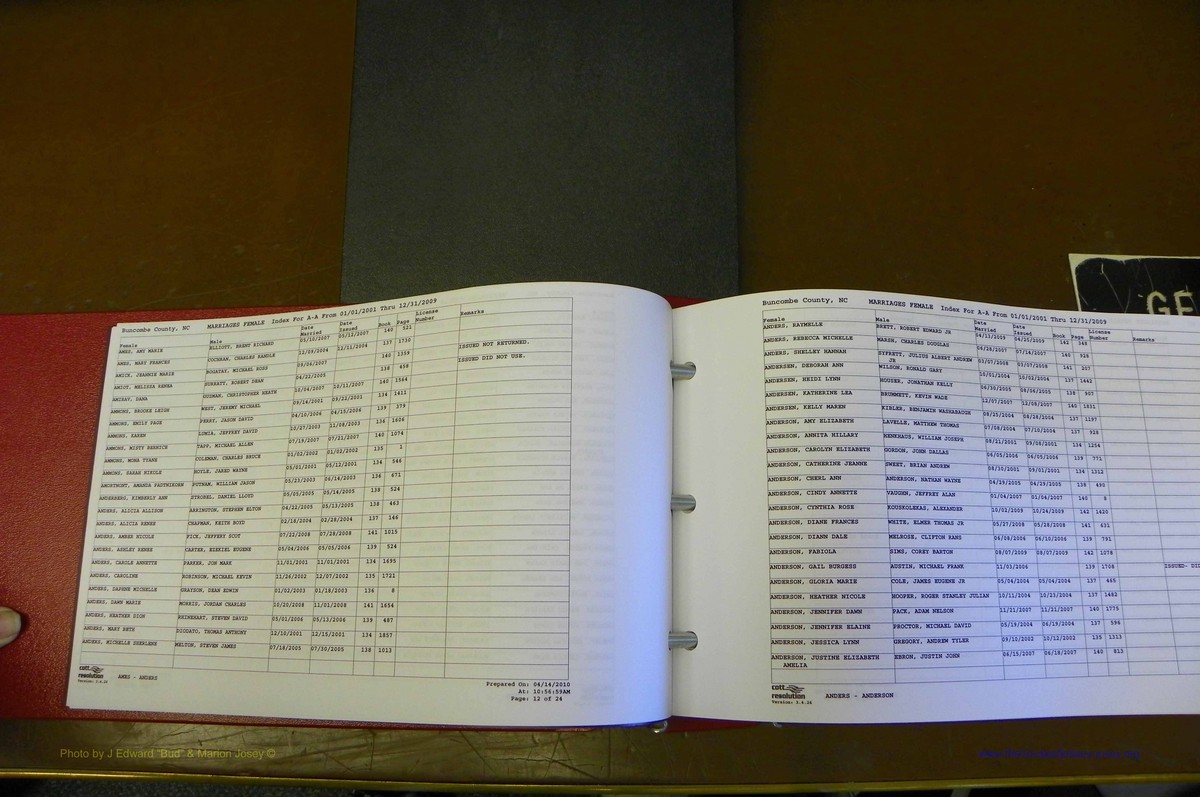 Buncombe County, NC MARRIAGES FEMALE Index For A-A From 01/01/2001 Thru 12/31/2009
Female Male Date Married Date Issued Book Page License Number Remarks
AMES, AMY MARIE ELLIOTT, BRENT RICHARD 05/10/2007 05/12/2007 140 521
AMES, MARY FRANCES COCHRAN, CHARLES RANDLE 12/09/2004 12/11/2004 137 1720
AMICK, JEANNIE MARIE BOGATAY, MICHAEL ROSS 09/06/2007 140 1359 ISSUED NOT RETURNED.
AMIDT, MELISSA RENEA ROBERT DEAN 04/22/2005 138 458 ISSUED DID NOT USE.
DANA GUZMAN, CHRISTOPHER HEATH 10/04/2007 10/13/2007 140 1564
AMMONS, BROOKE LEIGH WEST, JEREMY MICHAEL 09/14/2001 09/22/2001 134 1411
AMMONS, EMILY PAGE PERRY, JASON DAVID 04/10/2006 04/15/2006 139 379
AMMONS, KAREN JEFFREY DAVID 10/27/2003 11/08/2003 136 1606
AMMONS, MISTY BERNICE TAPP, MICHAEL ALLEN 07/19/2007 07/21/2007 140 1074
AMMONS, MONA TYARE COLEMAN, CHARLES BRUCE 01/02/2002 01/02/2002 135 1
AMMONS, SARAH NIKOLE HOYLE, JARED WAYNE 05/01/2001 05/12/2001 134 546
AMORTMONT, AMANDA PUTNAM, WILLIAM JASON 05/23/2003 06/14/2003 136 671
ANDERBERG, KIMBERLY ANN STROBEL, DANIEL LLOYD 05/05/2005 05/14/2005 138 524
ANDERS, ALICIA ALLISON ARRINGTON, STEPHEN ELTON 04/22/2005 05/13/2005 138 463
ANDERS, ALICIA RENEE CHAPMAN, KEITH BOYD 02/18/2004 02/28/2004 137 146
ANDERS, AMBER NICOLE FICK, JEFFERY SCOT 07/22/2008 07/28/2008 141 1015
ANDERS, ASHLEY RENEE CARTER, EZEKIEL EUGENE 05/04/2006 05/05/2006 139 524
ANDERS, CAROLE ANNETTE PARKER, JON MARK 11/01/2001 11/01/2001 134 1695
ANDERS, CAROLINE ROBINSON, MICHAEL KEVIN 11/26/2002 12/07/2002 135 1721
ANDERS, DAPHNE MICHELLE GRAYSON, DEAN EDWIN 01/02/2003 01/18/2003 136 8
ANDERS, DAWN MARIE MORRIS, JORDAN CHARLES 10/20/2008 11/01/2008 141 1654
ANDERS, HEATHER DION RHINEHART, STEVEN DAVID 05/01/2006 05/13/2006 139 487
ANDERS, MARY BETH DIODATO, THOMAS ANTHONY 12/10/2001 12/15/2001 134 1857
ANDERS, MICHELLE SHERLENE MELTON, STEVEN JAMES 07/18/2005 07/30/2005 138 1013
cott resolution
AMES - ANDERS
Prepared On: 04/14/2010
At: 10:56:59AM
Page: 12 of 24
Buncombe County, NC MARRIAGES FEMALE Index For A-A From 01/01/2001 Thru 12/31/2009
Female Male Date Married Date Issued Book Page License Number Remarks
ANDERS, RAYMELLE BRETT, ROBERT EDWARD JR 04/13/2009 04/25/2009 142
ANDERS, REBECCA MICHELLE MARSH, CHARLES DOUGLAS 06/26/2007 07/14/2007 140 928
ANDERS, SHELLEY HANNAH SYFRETT, JULIUS ALBERT ANDREW JR 03/07/2008 03/07/2008 141
ANDERSEN, DEBORAH ANN WILSON, RONALD GARY 10/01/2004 10/02/2004 137 1442
ANDERSEN, HEIDI LYNN HOUSER, JONATHAN KELLY 138 907
ANDERSEN, KATHERINE LEA BRUMMETT, KEVIN WADE 12/07/2007 12/08/2007 140 1831
ANDERSEN, KELLY MAREN KIBLER, BENJAMIN WASHABAUGH 08/25/2004 08/28/2004 137 1197
ANDERSON, AMY ELIZABETH LAVELLE, MATTHEW THOMAS 07/08/2004 07/10/2004 137 928
ANDERSON, ANNITA HILLARY HENKHAUS, WILLIAM JOSEPH 08/21/2001 09/08/2001 134 1254
ANDERSON, CAROLYN ELIZABETH GORDON, JOHN DALLAS 06/05/2006 06/05/2006 139 771
ANDERSON, CATHERINE JEANNE SWEET, BRIAN ANDREW 08/30/2001 09/01/2001 134 1312
ANDERSON, CHERL ANN ANDERSON, NATHAN WAYNE 04/29/2005 04/29/2005 138 490
ANDERSON, CINDY ANNETTE VAUGHN, JEFFREY ALAN 01/04/2007 01/04/2007 140 8
ANDERSON, CYNTHIA ROSE KOUSKOLEKAS, ALEXANDER 10/02/2009 10/24/2009 142 1420
ANDERSON, DIANE FRANCES WHITE, ELMER THOMAS JR 05/27/2008 05/28/2008 141 631
ANDERSON, DIANN DALE MELROSE, CLIFTON RANS 06/08/2006 06/10/2006 139 791
ANDERSON, FABIOLA SIMS, COREY BARTON 08/07/2009 08/07/2009 142 1078
ANDERSON, GAIL BURGESS AUSTIN, MICHAEL FRANK 11/03/2006 139 1708 ISSUED- DI
ANDERSON, GLORIA MARIE COLE, JAMES EUGENE JR 05/04/2004 05/04/2004 137 465
ANDERSON, HEATHER NICOLE HOOPER, ROGER STANLEY JULIAN 10/11/2004 10/23/2004 137 1482
ANDERSON, JENNIFER DAWN PACK, ADAM NELSON 11/21/2007 11/21/2007 140 1775
ANDERSON, JENNIFER ELAINE PROCTOR, MICHAEL DAVID 05/19/2004 06/19/2004 137 596
ANDERSON, JESSICA LYNN GREGORY, ANDREW TYLER 09/10/2002 10/12/2002 135 1313
ANDERSON, JUSTINE ELIZABETH AMELIA EBRON, JUSTIN JOHN 06/15/2007 06/18/2007 140 813
cott resolution
ANDERS - ANDERSON
GE
Photo by J Edward "Bud" & Marion Josey ©